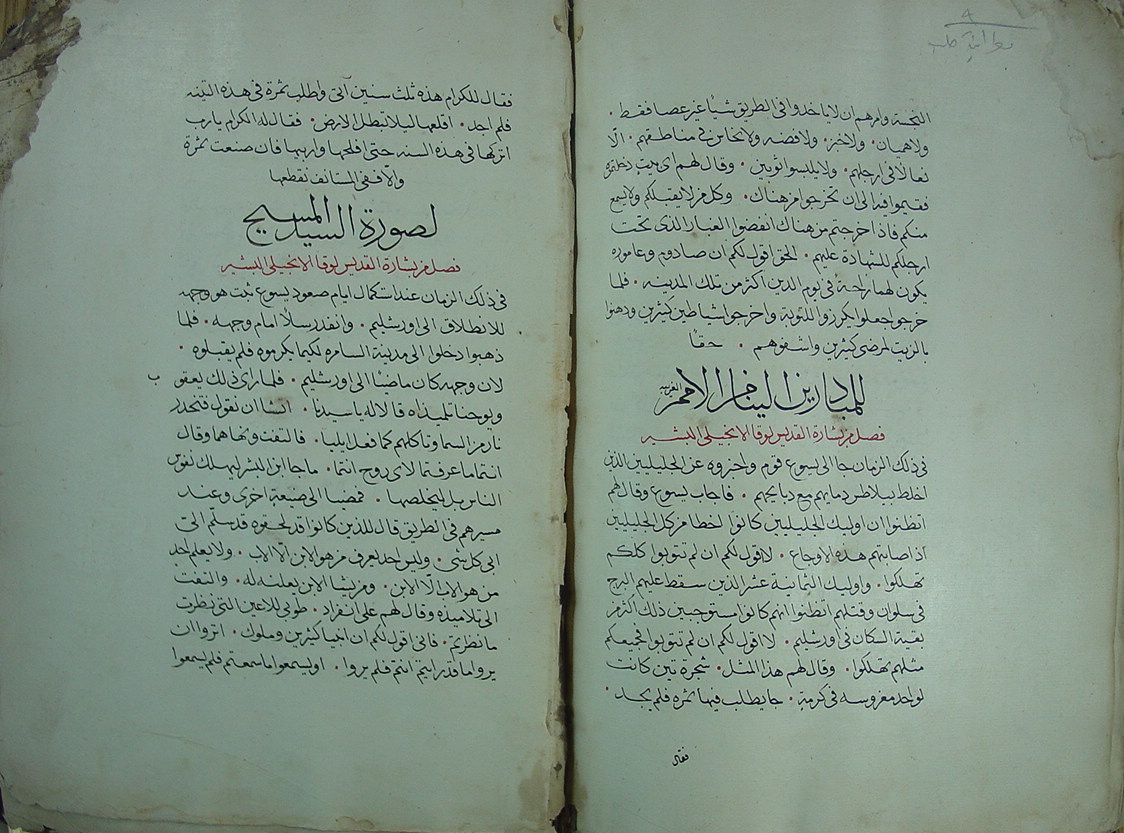 النجسة وامرهم ان لا ياخدوا في الطريق شيئا غير عصا فقط ·
ولا هميان · ولا خبز · ولا فضه ولا نحاس في مناطقهم · الا
نعالا في ارجلهم · ولا يلبسوا ثوبين · وقال لهم اي بيت دخلتموه
فقيموا فيه الى ان تخرجوا من هناك · وكل من لا يقبلكم ولا يسمع
منكم فاذا خرجتم من هناك انفضوا الغبار الذى تحت
ارجلكم للشهادة عليهم · الحق اقول لكم ان صادوم وعاموره
يكون لهما راحة في يوم الدين اكثر من تلك المدينه · فلما
خرجوا جعلوا يكرزوا للتوبة واخرجوا شياطين كثيرين ودهنوا
بالزيت لمرضى كثيرين واشفوهم · حقا
فصل من بشارة القديس لوقا الانجيلى البشير
في ذلك الزمان جا الى يسوع قوم واخبروه عن الجليليين الذين
اخلط بيلاطس دمايهم مع دبايحهم · فاجاب يسوع وقال لهم
اتظنوا ان اوليك الجليليين كانوا اخطا من كل الجليليين
اذ اصابتهم هذه الاوجاع · لا اقول لكم ان لم تتوبوا كلكم
تهلكوا · واوليك الثمانية عشر الذين سقط عليهم البرج
في سلوان وقتلهم اتظنوا انهم كانوا مستوجبين ذلك اكثر من
بقية السكان في اورشليم · لا اقول لكم ان لم تتوبوا فجميعكم
مثلهم تهلكوا · وقال لهم هذا المثل · شجرة تين كانت
لواحد مغروسه في كرمة · جا يطلب فيها ثمره فلم يجد ·
فقال
فقال للكرام هذه ثلث سنين آتى واطلب ثمرة في هذه التينه
فلم اجد · اقلعها ليلا تبطل الارض · فقال له الكرام يا رب
اتركها في هذه السنه حتى افلحها واربيها فان صنعت ثمرة
والا ففي المستانف نقطعها
لصورة السيد المسيح
فصل من بشارة القديس لوقا الانجيلى البشير
في ذلك الزمان عند استكمال ايام صعود يسوع ثبت هو وجهه
للانطلاق الى اورشليم · وانفد رسلا امام وجهه · فلما
ذهبوا دخلوا الى مدينة السامره لكيما يكرموه فلم يقبلوه ·
لان وجهه كان ماضيا الى اورشليم · فلما راى ذلك يعقوب
ويوحنا تلميذاه قالا له يا سيدنا · اتشا ان نقول فتنحدر
نار من السما وتاكلهم كما فعل ايليا · فالتفت ونهاهما وقال
انتما ما عرفتما لاى روح انتما · ما جا ابن البشر ليهلك نفوس
الناس بل ليخلصها · فمضيا الى ضيعة اخرى وعند
مسيرهم في الطريق قال للذين كانوا قد لحقوه قد سلم الي
ابى كل شى · وليس احد يعرف من هو الابن الا الاب · ولا يعلم احد
من هو الاب الا الابن · ومن يشا الابن يعلنه له · والتفت
الى تلاميذه وقال لهم على انفراد · طوبى للاعين التى نظرت
ما نظرتم · فانى اقول لكم ان انبيا كثيرين وملوك · اثروا ان
يروا ما قد رايتم انتم فلم يروا · او يسمعوا ما سمعتم فلم يسمعوا